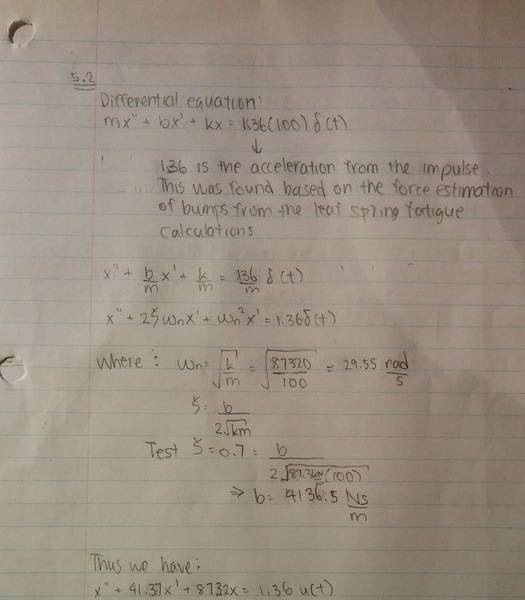 5.2
Differential equation:
mx" + bx' + kx = 1.36(100) δ(t)
↓
1.36 is the acceleration from the impulse.
This was found based on the force estimation
of bumps from the leaf spring fatigue
calculations
x" + b/m x' + k/m = 136/m δ(t)
x" + 2ζωnx' + ωn²x' = 1.36δ(t)
Where: ωn = √(k/m) = √(87320/100) = 29.55 rad/s
ζ = b/(2√km)
Test ζ = 0.7 = b/(2√(87.3kN(100)))
⇒ b = 4136.5 Ns/m
Thus we have:
x" + 41.37x' + 8732x = 1.36 u(t)